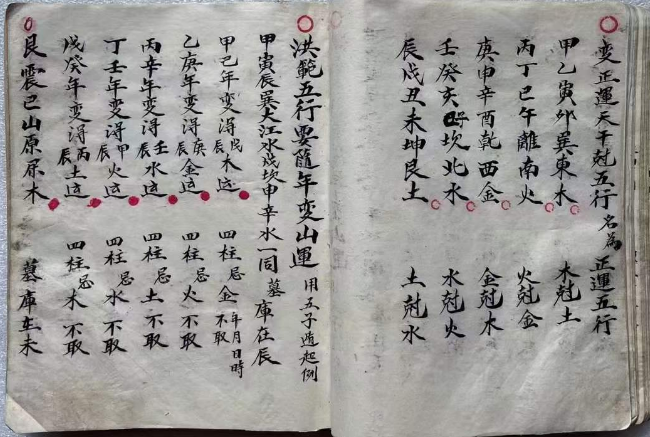 变正運天干尅五行 名為 正運五行
甲乙寅卯巽東木 木尅土
丙丁巳午離南火 火尅金
庚申辛酉乾西金 金尅木
壬癸亥坎北水 水尅火
辰戌丑未坤艮土 土尅水
洪範五行要隨年变山運 用五子遁起例
甲寅辰巽大江水戌坎申辛水一同 墓庫在辰
甲己年变得戊辰木运 四柱忌金不取 年月日時
乙庚年变得庚辰金运 四柱忌火不取
丙辛年变得壬辰水运 四柱忌土不取
丁壬年变得甲辰火运 四柱忌水不取
戊癸年变得丙辰土运 四柱忌木不取
艮震巳山原属木 墓庫在未